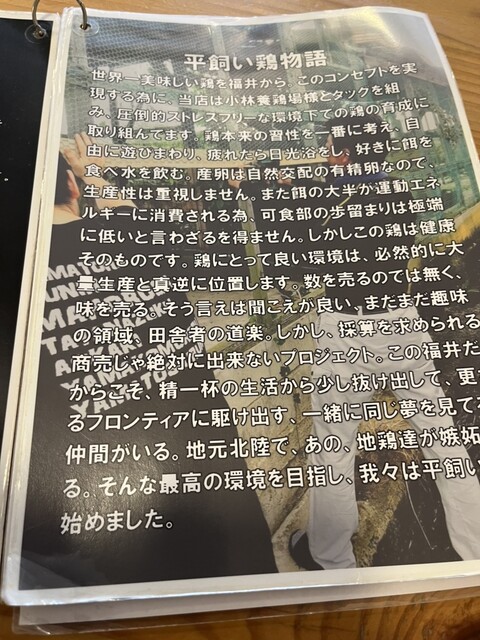 平飼い鶏物語
世界一美味しい鶏を福井から、このコンセプトを実
現する為に、当店は小林養鶏場様とタックを組
み、圧倒的ストレスフリーな環境下での鶏の育成に
取り組んでます。鶏本来の習性を一番に考え、自
由に遊びまわり、疲れたら日光浴をし、好きに餌を
食べ水を飲む。産卵は自然交配の有精卵なので、
生産性は重視しません。また餌の大半が運動エネ
ルギーに消費される為、可食部の歩留まりは極端
に低いと言わざるを得ません。しかしこの鶏は健康
そのものです。鶏にとって良い環境は、必然的に大
量生産と真逆に位置します。数を売るのでは無く、
味を売る。そう言えば聞こえが良い、まだまだ趣味
の領域、田舎者の道楽。しかし、採算を求められる
商売じゃ絶対に出来ないプロジェクト。この福井だ
からこそ、精一杯の生活から少し抜け出して、更な
るフロンティアに駆け出す、一緒に同じ夢を見てる
仲間がいる。地元北陸で、あの、地鶏達が嫉妬
る。そんな最高の環境を目指し、我々は平飼い
始めました。